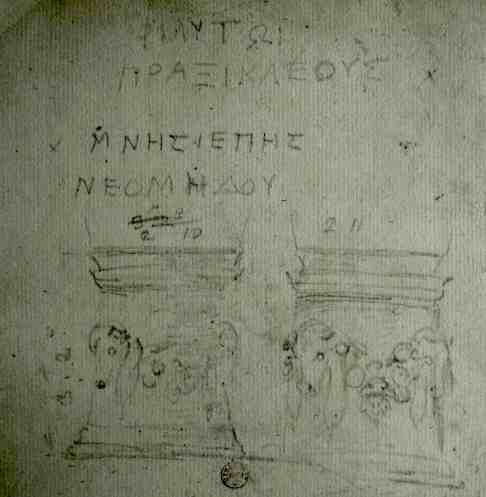 ΦΙΛΥΤΩΙ
ΠΡΑΞΙΚΛΕΟΥΣ
ΜΝΗΣΙΕΠΗΣ
ΝΕΟΜΗΔΟΥ
2 10
2 11